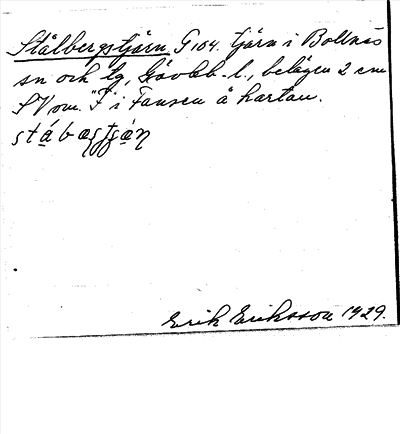 Stålbergstjärn G104. tjärn i Bollnäs
sn och tg, Gävleb. l., belägen 2 cm
SV om. "F" i Fansen å kartan.
Erik Eriksson 1929.